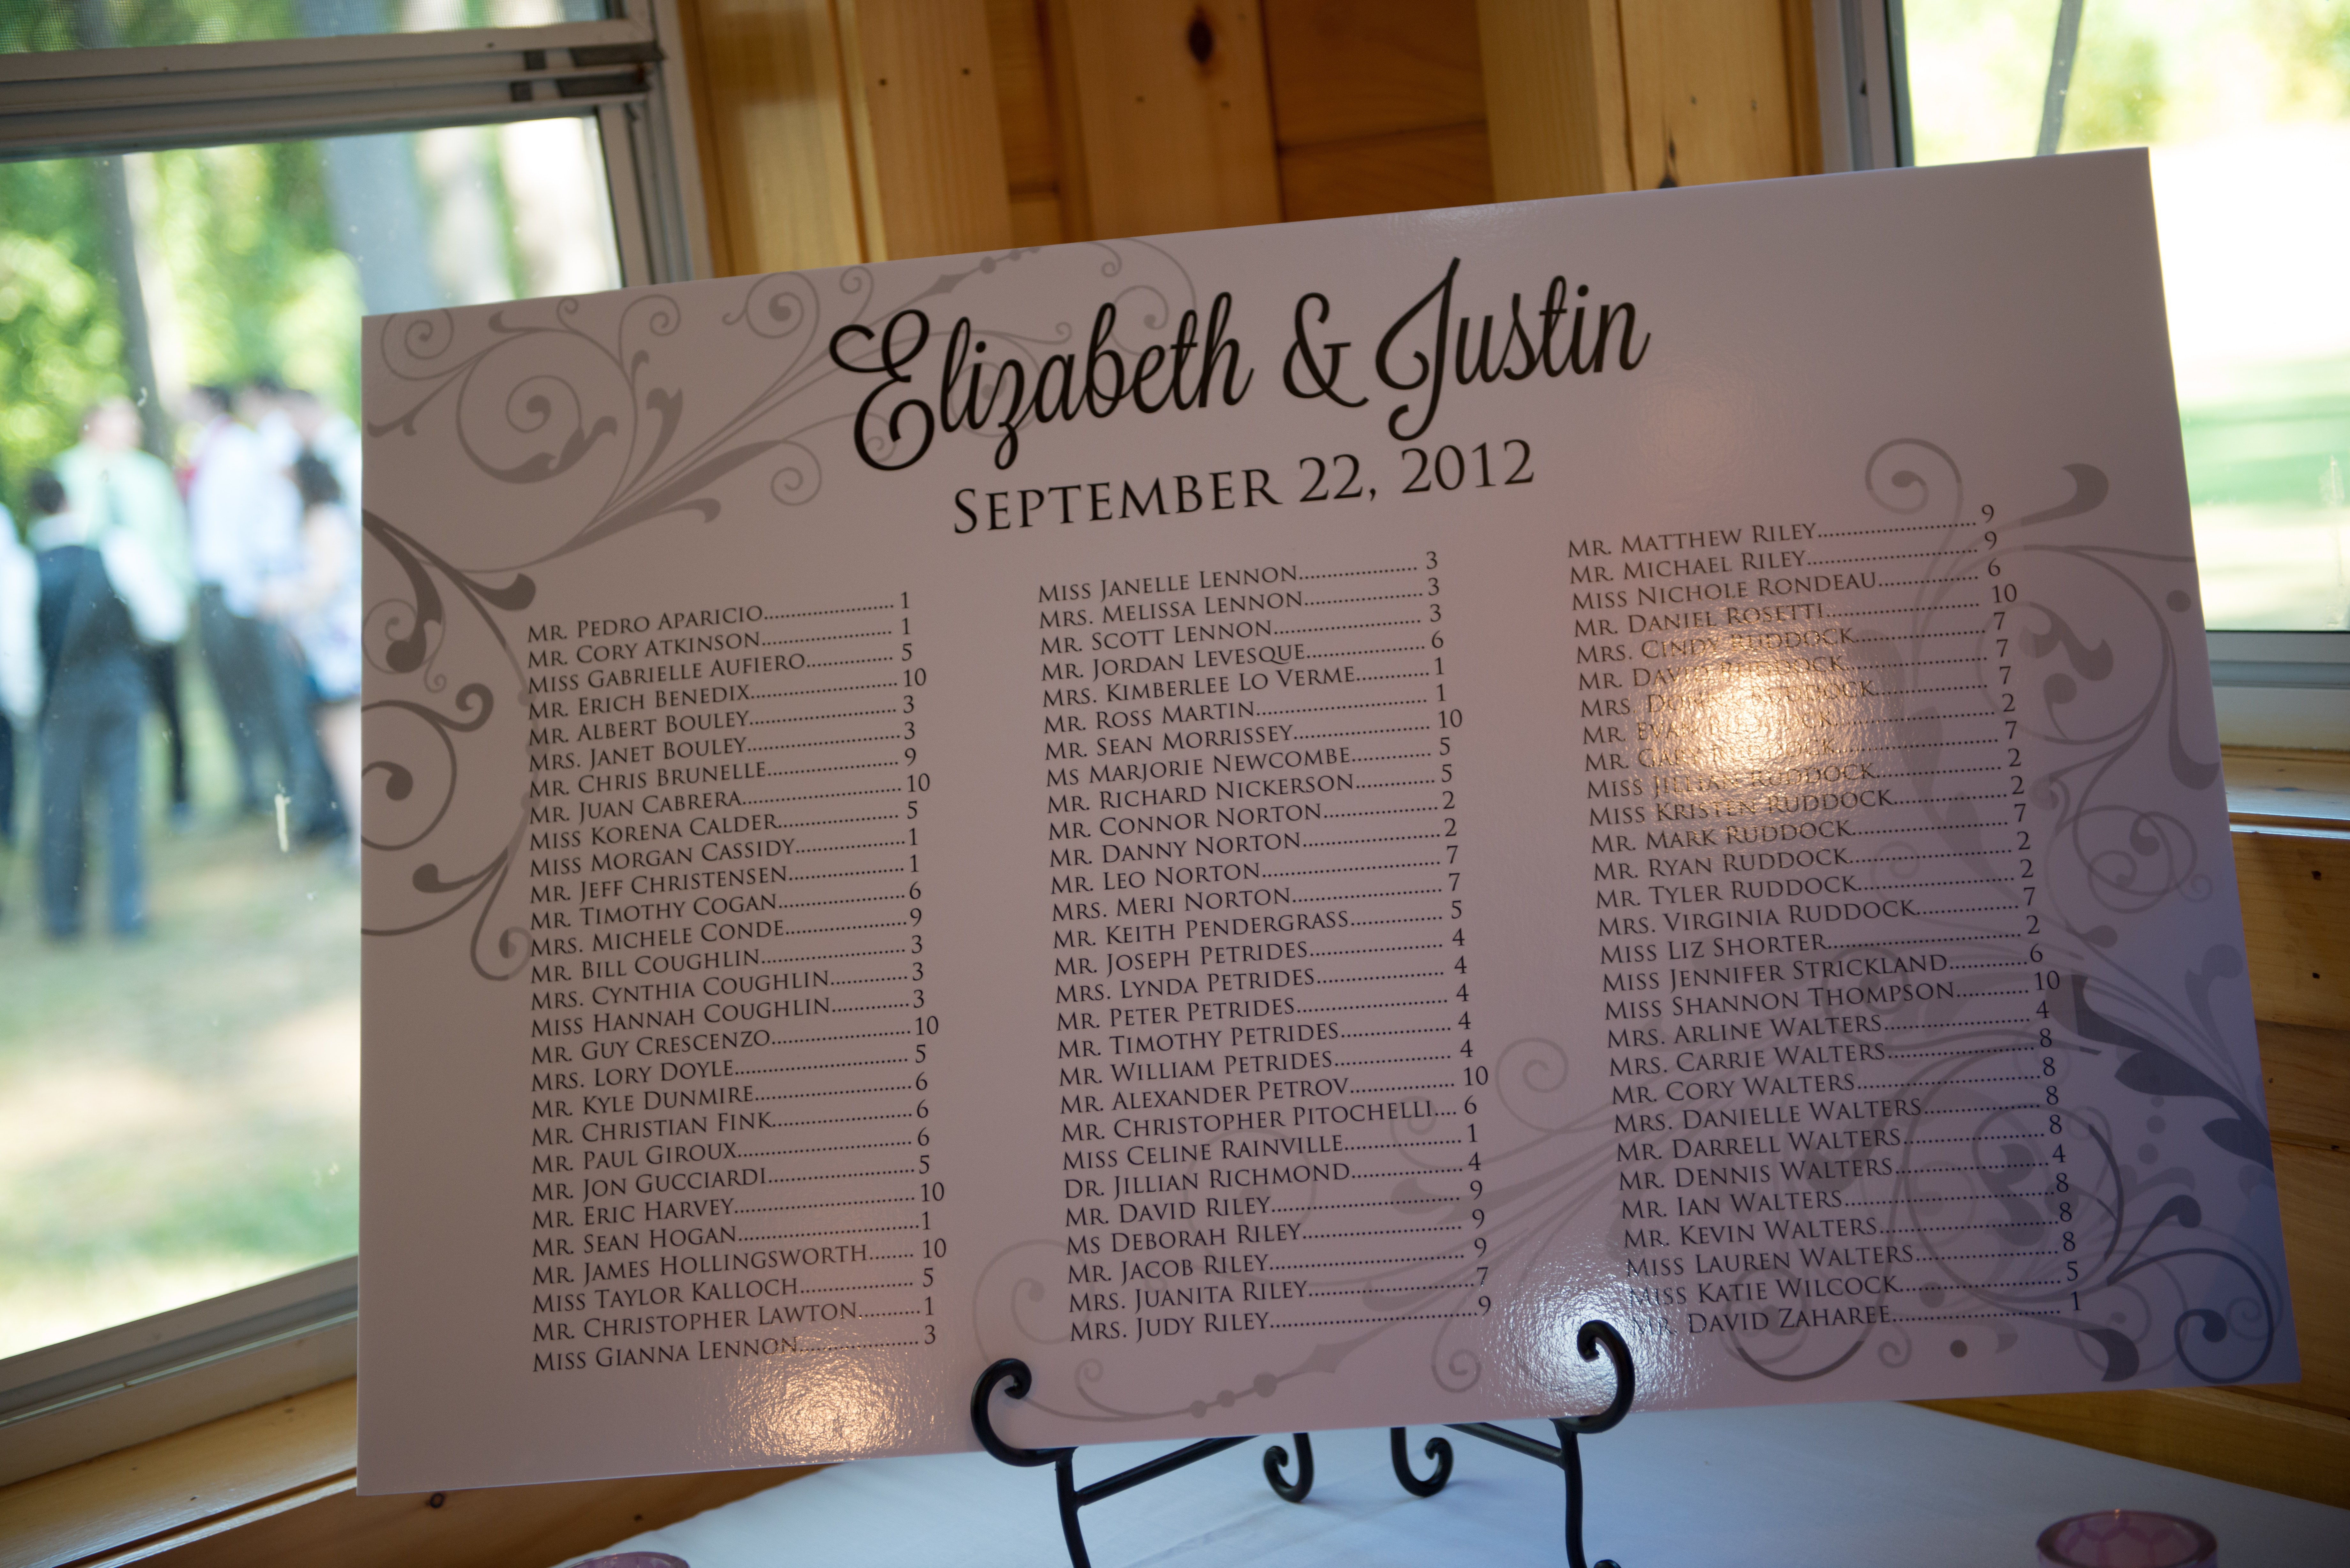 Elizabeth & Justin
September 22, 2012
Mr. Pedro Aparicio....................... 1
Mr. Cory Atkinson....................... 1
Miss Gabrielle Aufiero............... 5
Mr. Erich Benedix......................... 10
Mr. Albert Bouley......................... 3
Mrs. Janet Bouley.......................... 3
Mr. Chris Brunelle...................... 9
Mr. Juan Cabrera........................... 10
Miss Korena Calder.................... 5
Miss Morgan Cassidy................... 1
Mr. Jeff Christensen.................... 1
Mr. Timothy Cogan...................... 6
Mrs. Michele Conde..................... 9
Mr. Bill Coughlin......................... 3
Mrs. Cynthia Coughlin............. 3
Miss Hannah Coughlin............. 3
Mr. Guy Crescenzo....................... 10
Mrs. Lory Doyle............................ 5
Mr. Kyle Dunmire......................... 6
Mr. Christian Fink....................... 6
Mr. Paul Giroux............................ 6
Mr. Jon Gucciardi........................ 5
Mr. Eric Harvey............................. 10
Mr. Sean Hogan............................. 1
Mr. James Hollingsworth........ 10
Miss Taylor Kalloch.................. 5
Mr. Christopher Lawton.......... 1
Miss Gianna Lennon................... 3
Miss Janelle Lennon................... 3
Mrs. Melissa Lennon................... 3
Mr. Scott Lennon......................... 3
Mr. Jordan Levesque................... 6
Mrs. Kimberlee Lo Verme............ 1
Mr. Ross Martin............................ 1
Mr. Sean Morrissey...................... 10
Ms Marjorie Newcombe............. 5
Mr. Richard Nickerson.............. 5
Mr. Connor Norton................... 2
Mr. Danny Norton....................... 2
Mr. Leo Norton............................. 7
Mrs. Meri Norton........................ 7
Mr. Keith Pendergrass............... 5
Mr. Joseph Petrides..................... 4
Mrs. Lynda Petrides.................... 4
Mr. Peter Petrides........................ 4
Mr. Timothy Petrides.................. 4
Mr. William Petrides................... 4
Mr. Alexander Petrov................. 10
Mr. Christopher Pitochelli.... 6
Miss Celine Rainville................. 1
Dr. Jillian Richmond.................. 4
Mr. David Riley............................. 9
Ms Deborah Riley......................... 9
Mr. Jacob Riley.............................. 9
Mrs. Juanita Riley......................... 7
Mrs. Judy Riley.............................. 9
Mr. Matthew Riley........................ 9
Mr. Michael Riley.......................... 9
Miss Nichole Rondeau............... 6
Mr. Daniel Rosetti........................ 10
Mrs. Cindy Ruddock.................... 7
Mr. David Ruddock...................... 7
Mrs. Ruddock................... 7
Mr. Evan Ruddock....................... 2
Mr. Gary Ruddock....................... 7
Miss Jillian Ruddock................... 2
Miss Kristen Ruddock................ 2
Mr. Mark Ruddock....................... 7
Mr. Ryan Ruddock........................ 2
Mr. Tyler Ruddock....................... 2
Mrs. Virginia Ruddock............... 7
Miss Liz Shorter........................... 2
Miss Jennifer Strickland............ 6
Miss Shannon Thompson........... 10
Mrs. Arline Walters..................... 4
Mrs. Carrie Walters..................... 8
Mr. Cory Walters.......................... 8
Mrs. Danielle Walters................ 8
Mr. Darrell Walters.................... 8
Mr. Dennis Walters...................... 4
Mr. Ian Walters............................. 8
Mr. Kevin Walters........................ 8
Miss Lauren Walters................... 8
Miss Katie Wilcock...................... 5
Mr. David Zaharee........................ 1